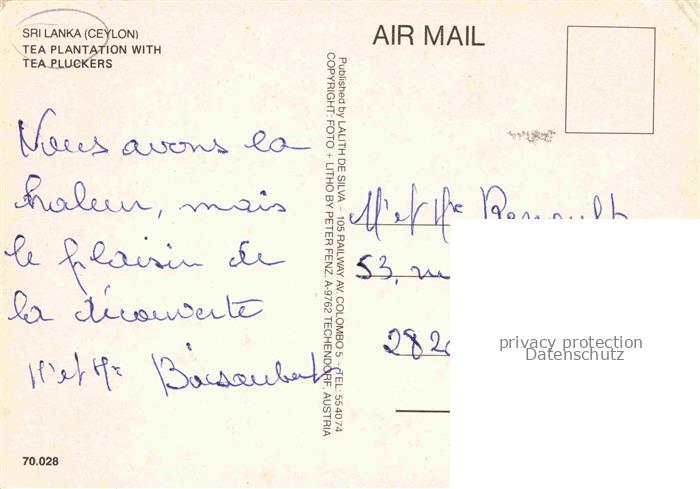 SRI LANKA (CEYLON)
TEA PLANTATION WITH
TEA PLUCKERS
Nous avons la
haleur, mais
le plaisir de
la découverte
Mr et Me
AIR MAIL
Published by LALITH DE SILVA – 105 RAILWAY AV. COLOMBO 5 – TEL: 554074
COPYRIGHT: FOTO + LITHO BY PETER FENZ, A-9762 TECHENDORF, AUSTRIA
Mr et Me Renault
53, ru
282
privacy protection
Datenschutz
70.028